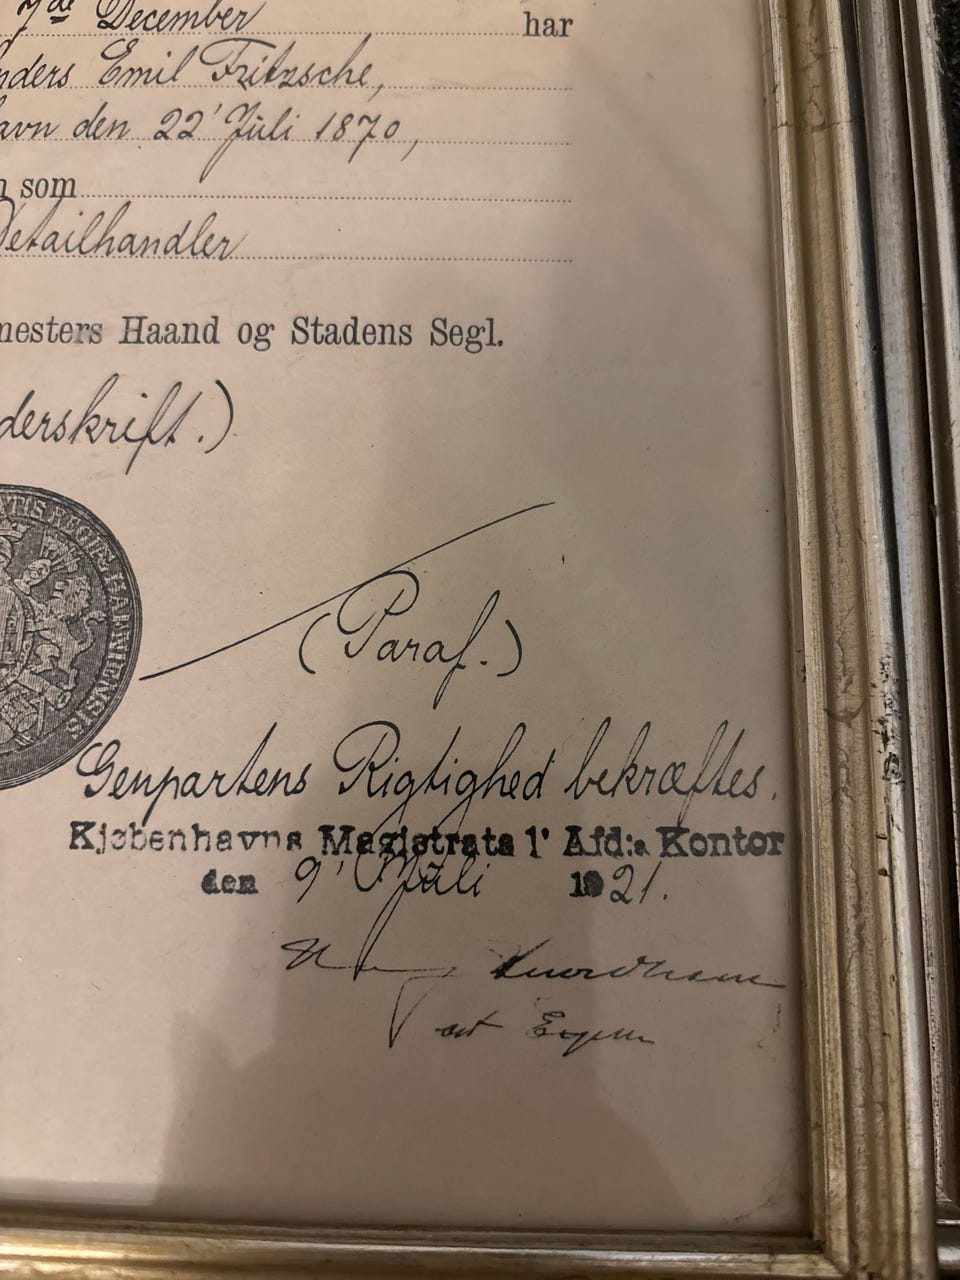 7de December har
nders Emil Fritzsche,
avn den 22' Juli 1870,
n som
Detailhandler
mesters Haand og Stadens Segl.
derskrift.)
HAFNIENSIS
(Paraf.)
Genpartens Rigtighed bekræftes.
Kjøbenhavns Magistrats 1' Afd:s Kontor
den 9' Juli 1921.